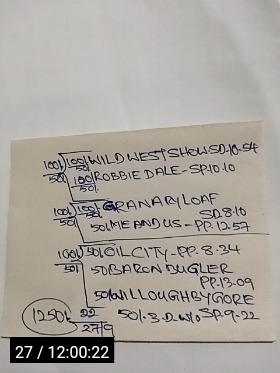 100/- 100/- WILD WEST SHOW SD.10.54
50/- 50/-
100/- ROBBIE DALE - SP.10.10
50/- 50/-
100/- 100/- GRANARY LOAF
50/- 50/- SD.8.10
50/- ME AND US - PP.12.57
100/- 50/- OIL CITY - PP. 8.34
50/- 50 BARON DUGLER
PP.13.09
50/- WILLOUGHBY GORE
1250/- 22 50/- 3.D. W/O SP.9-22
27/9
27 / 12:00:22